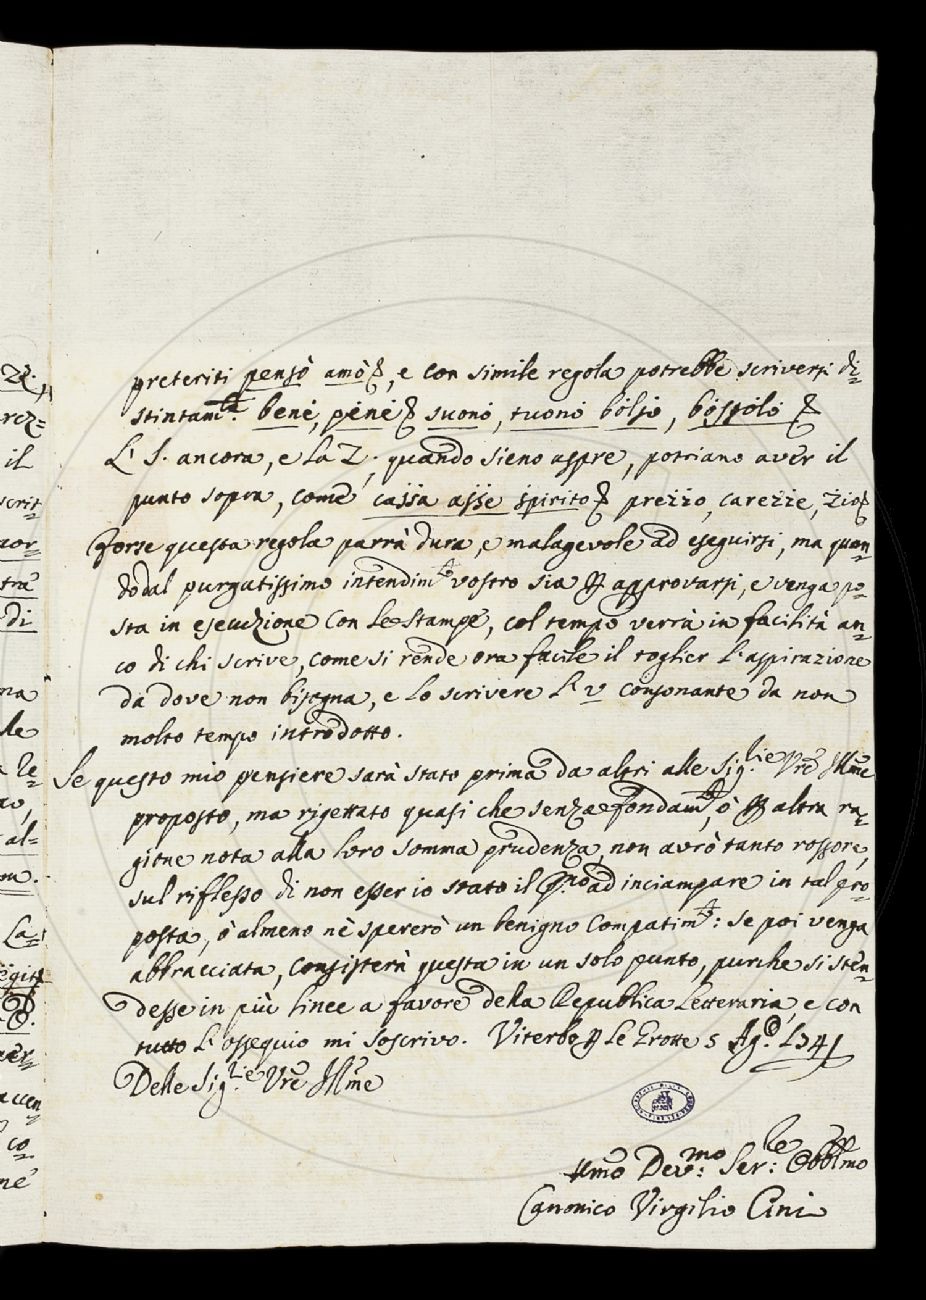 preteriti pensò amò &, e con simile regola potrebbe scriversi di=
stintam.te bene, pene & suono, tuono bolso, bossolo &
L' S. ancora, e la Z. quando sieno aspre, potriano aver il
punto sopra, come cassa asse spirito & prezzo, carezze, zio &
forse questa regola parrà dura, e malagevole ad eseguirsi, ma quan=
do dal purgatissimo intendim.to vostro sia p approvarsi, e venga po=
sta in esecuzione con le stampe, col tempo verrà in facilità an=
co di chi scrive, come si rende ora facile il toglier l'aspirazione
da dove non bisogna, e lo scrivere l' v consonante da non
molto tempo introdotto.
Se questo mio pensiere sarà stato prima da altri alle Sig.lie Vre Illme
proposto, ma rigettato quasi che senza fondam.to, ò p altra ra=
gione nota alla loro somma prudenza, non avrò tanto rossore,
sul riflesso di non esser io stato il p.mo ad inciampare in tal pro=
posta, ò almeno nè spererò un benigno compatim.to: se poi venga
abbracciata, consisterà questa in un solo punto, purche si sten=
desse in più linee a favore della Republica Letteraria, e con
tutto l' ossequio mi soscrivo. Viterbo p le Grotte 5 Ag.o 1741
Delle Sig.lie Vre Illme
Umo Dev.mo Ser.re Obblmo
Canonico Virgilio Cini